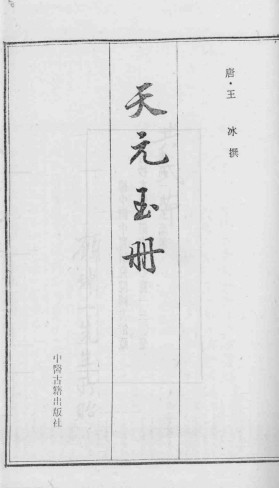 唐·王 冰 撰
天元玉册
中醫古籍出版社